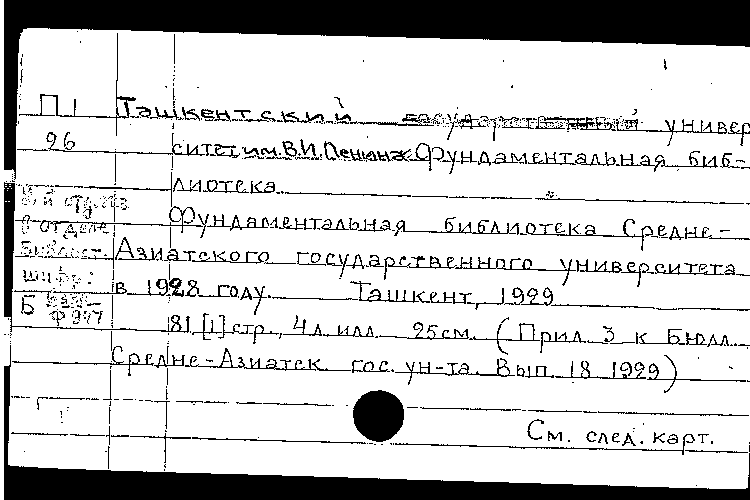 П1 Ташкентский государственный универ
96 ситет им. В.И. Ленина Фундаментальная биб-
лиотека
Фундаментальная библиотека Средне-
Азиатского государственного университета
в 1928 году. Ташкент, 1929
81 [1] стр., 4 л. илл. 25 см. (Прил. 3 к Бюлл.
Средне-Азиатск. гос. ун-та. Вып. 18 1929)
См. след. карт.
в отделе
Библиот.
шифр:
Б